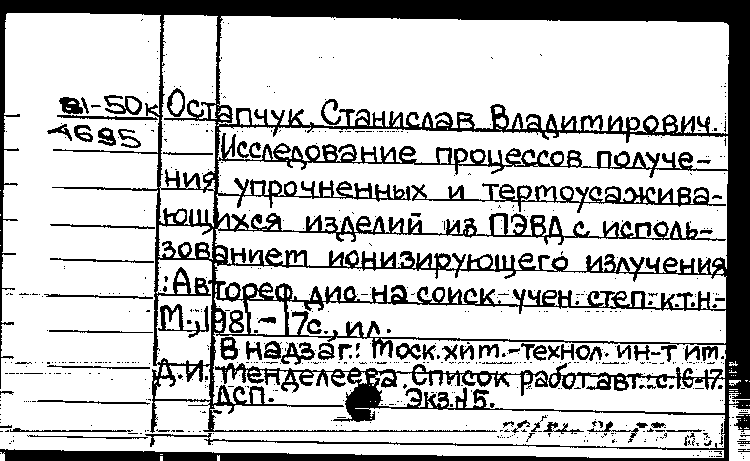 81-50к Остапчук, Станислав Владимирович.
А695
Исследование процессов получе-
ния упрочненных и термоусажива-
ющихся изделий из ПЭВД с исполь-
зованием ионизирующего излучения
: Автореф. дис. на соиск. учен. степ. к.т.н.-
М., 1981.- 17с., ил.
В надзаг.: Моск. хим.-технол. ин-т им.
Д.И. Менделеева. Список работ авт.: с.16-17.
ДСП. Экз.№15.